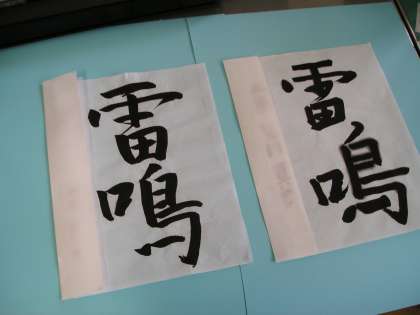 雷鳴
雷鳴